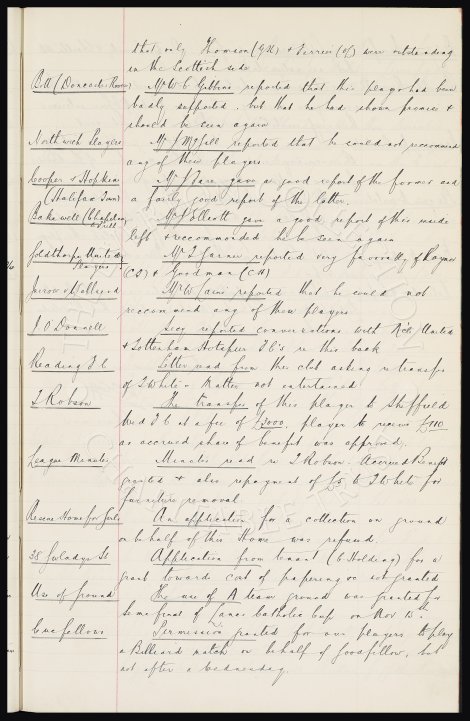 that only Howson (GK) & Ferrier (OL) were outstanding
in the Scottish side
Bell (Doncaster Rovers) Mr W C Gibbins reported that this player had been
badly supported, but that he had shown promise &
should be seen again
Northwich Players Mr J McFall reported that he could not recommend
any of these players.
Cooper & Hopkins Mr J Fare gave a good report of the former and
(Halifax Town) a fairly good report of the latter.
Bakewell (Chapeltown Mr J Elliott gave a good report of this inside
left & recommended he be seen again
Goldthorpe United Mr T Larner reported very favourably of Raynor
Players (CF) & Goodman (CH)
Mr W Cain reported that he could not
recommend any of these players
J O'Donnell Secy reported conversations with United
& Tottenham Hotspur F C's re this back
Reading F C Letter read from this club asking re transfer
of T White. Matter not entertained
T Robson The transfer of this player to Sheffield
Wed F C at a fee of £3000, player to receive £110
as accrued share of benefit was approved.
League Minutes Minutes read re T Robson. Accrued Benefit
granted & also repayment of £5 to T White for
furniture removal
Rescue Home for Girls An application for a collection on ground
on behalf of this Home was refused.
38 Goladys St Application from tenant (C Holding) for a
grant toward cost of papering &c not granted
Use of ground The use of A team ground was granted for
semi final of Lancs Catholic Cup on Nov 15th
Goodfellow Permission granted for our players to play
a Billiard match on behalf of Goodfellow, but
not after a Wednesday.